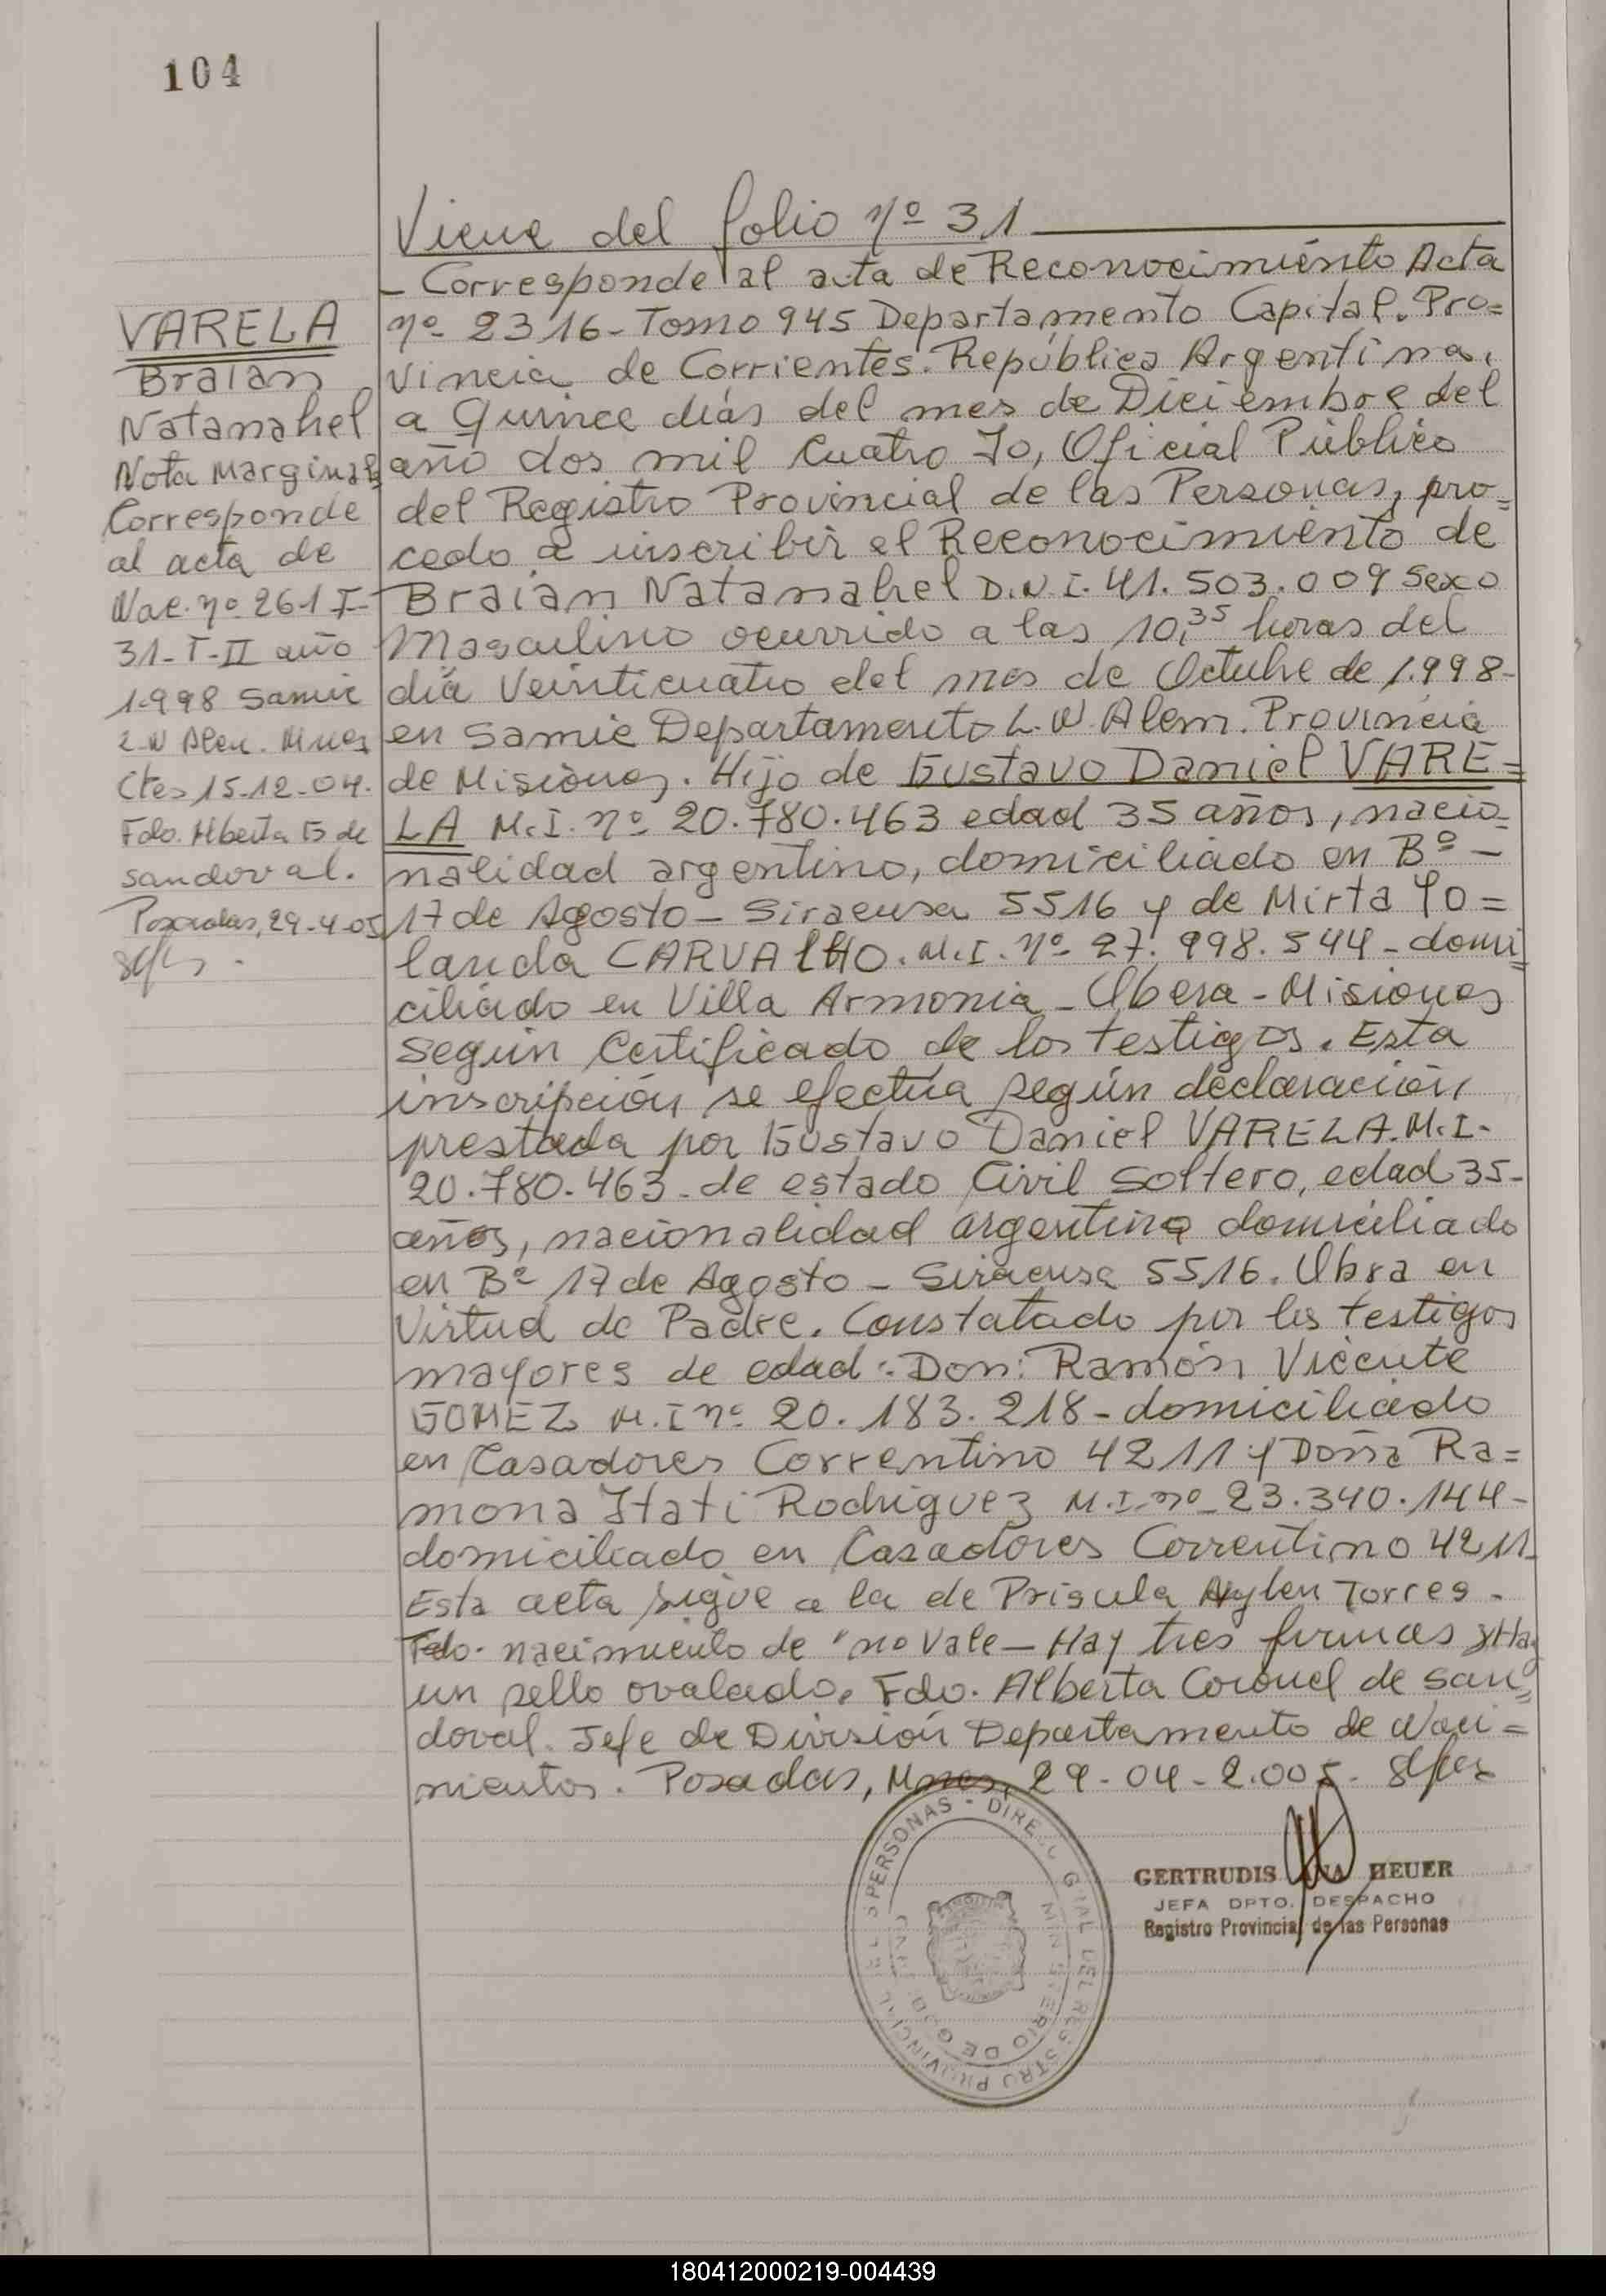 104
Viene del folio nº 31
- Corresponde al acta de Reconocimiento Acta
nº 2316 - Tomo 945 Departamento Capital. Pro=
vincia de Corrientes. República Argentina,
a Quince días del mes de Diciembre del
año dos mil Cuatro Yo, Oficial Público
del Registro Provincial de las Personas, pro=
cedo a inscribir el Reconocimiento de
Braian Natanahel D.N.I. 41.503.009 Sexo
Masculino ocurrido a las 10,35 horas del
día Veinticuatro del mes de Octubre de 1.998-
en Samic Departamento L.N. Alem. Provincia
de Misiones. Hijo de Gustavo Daniel VARE=
LA M.I. nº 20.780.463 edad 35 años, nacio=
nalidad argentino, domiciliado en Bº -
17 de Agosto - Siracusa 5516 y de Mirta Yo=
landa CARVALHO. M.I. nº 27.998.544 - domi=
ciliado en Villa Armonia - Obera - Misiones
Según Certificado de los testigos. Esta
inscripción se efectúa según declaración
prestada por Gustavo Daniel VARELA. M.I.
20.780.463 - de estado Civil Soltero, edad 35-
años, nacionalidad argentina domiciliado
en Bº 17 de Agosto - Siracusa 5516. Obra en
Virtud de Padre. Constatado por los testigos
mayores de edad: Don: Ramón Vicente
GOMEZ M.I nº 20.183.218 - domiciliado
en Casadores Correntino 4211 y Doña Ra=
mona Itati Rodriguez M.I. nº 23.340.144-
domiciliado en Casadores Correntino 4211-
Esta acta sigue a la de Priscula Aylen Torres.
Fdo. nacimiento de "no Vale - Hay tres firmas y Hay
un sello ovalado. Fdo. Alberta Coronel de San=
doval. Jefe de División Departamento de Naci=
mientos. Posadas, Mnes, 29-04-2.005-
VARELA
Braian
Natanahel
Nota Marginal
Corresponde
al acta de
Nac. nº 261 F-
31-T-II año
1.998 Samic
L-N Alem. Mnes
Ctes 15-12-04.
Fdo. Alberta C de
sandoval.
Posadas, 29-4-05
PERSONAS - DIREC. GRAL DEL REGISTRO PROVINCIAL DE LAS
MINISTERIO DE GOBIERNO
GERTRUDIS ANA HEUER
JEFA DPTO. DESPACHO
Registro Provincial de las Personas
180412000219-004439